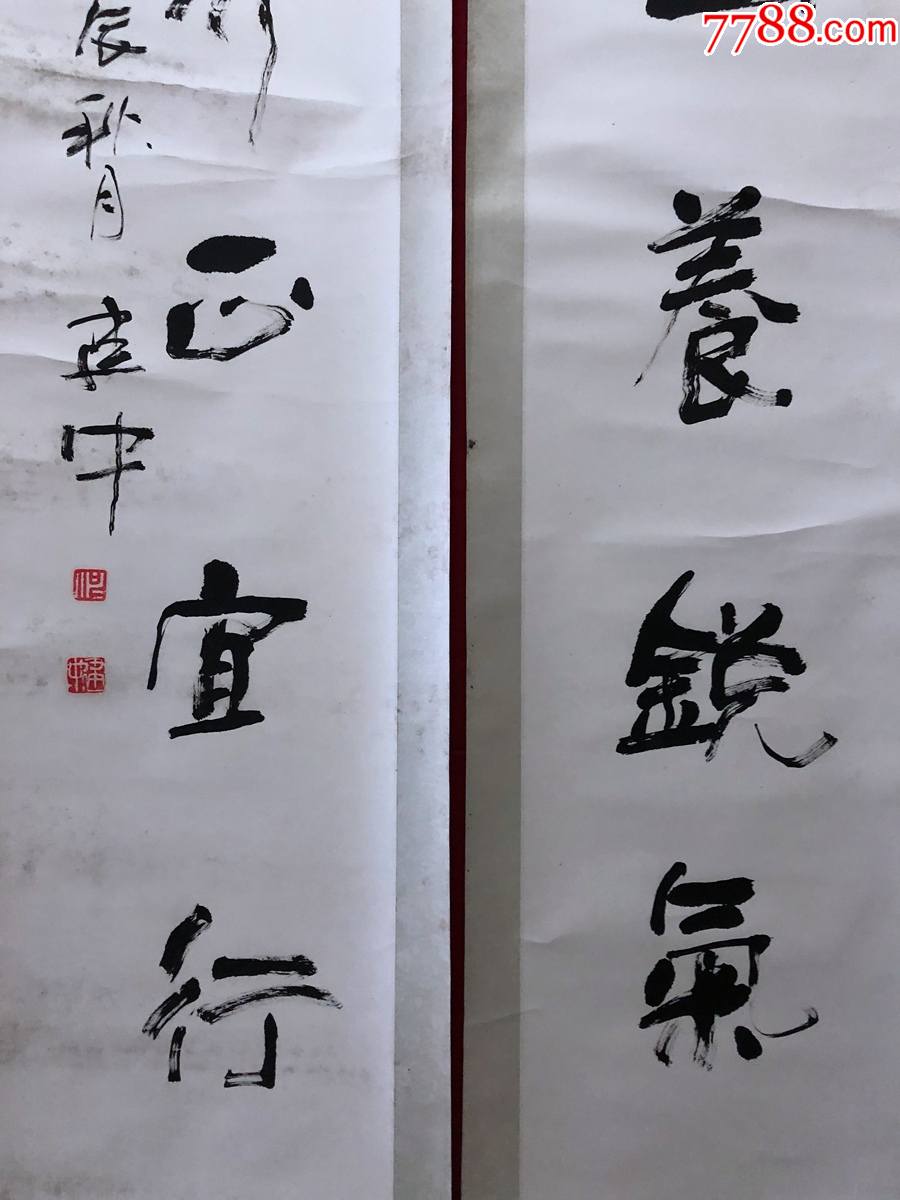 7788.com
養銳氣
正宜行
辰秋月
建中